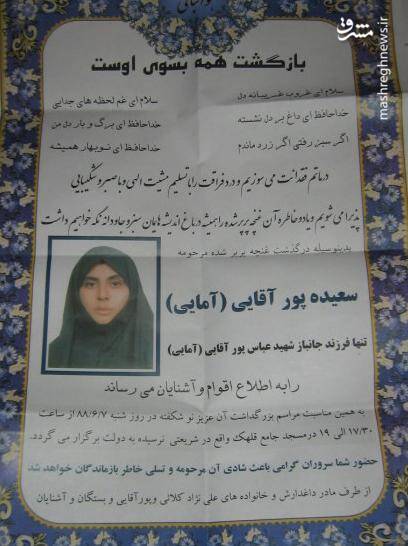 مشرق
mashreghnews.ir
بازگشت همه بسوی اوست
سلام ای غروب غریبانه دل
سلام ای غم لحظه های جدایی
خداحافظ ای داغ بر دل نشسته
خداحافظ ای برگ و بار دل من
اگر سبز رفتی اگر زرد ماندم
خداحافظ ای نوبهار همیشه
در ماتم فقدانت می سوزیم و درد فراقت را با تسلیم مشیت الهی و با صبر و شکیبایی
پذیرا می شویم و یاد و خاطره آن غنچه پرپر شده را همیشه در باغ اندیشه هامان سبز و جاودانه نگه خواهیم داشت
بدینوسیله درگذشت غنچه پرپر شده مرحومه
سعیده پور آقایی (آمایی)
تنها فرزند جانباز شهید عباس پور آقایی (آمایی)
را به اطلاع اقوام و آشنایان می رساند
به همین مناسبت مراسم بزرگداشت آن عزیز نو شکفته در روز شنبه ۸۸/۶/۷ از ساعت
۱۷/۳۰ الی ۱۹ در مسجد جامع قلهک واقع در شریعتی نرسیده به دولت برگزار می گردد.
حضور شما سروران گرامی باعث شادی آن مرحومه و تسلی خاطر بازماندگان خواهد شد
از طرف مادر داغدارش و خانواده های علی نژاد کلالی و پورآقایی و بستگان و آشنایان